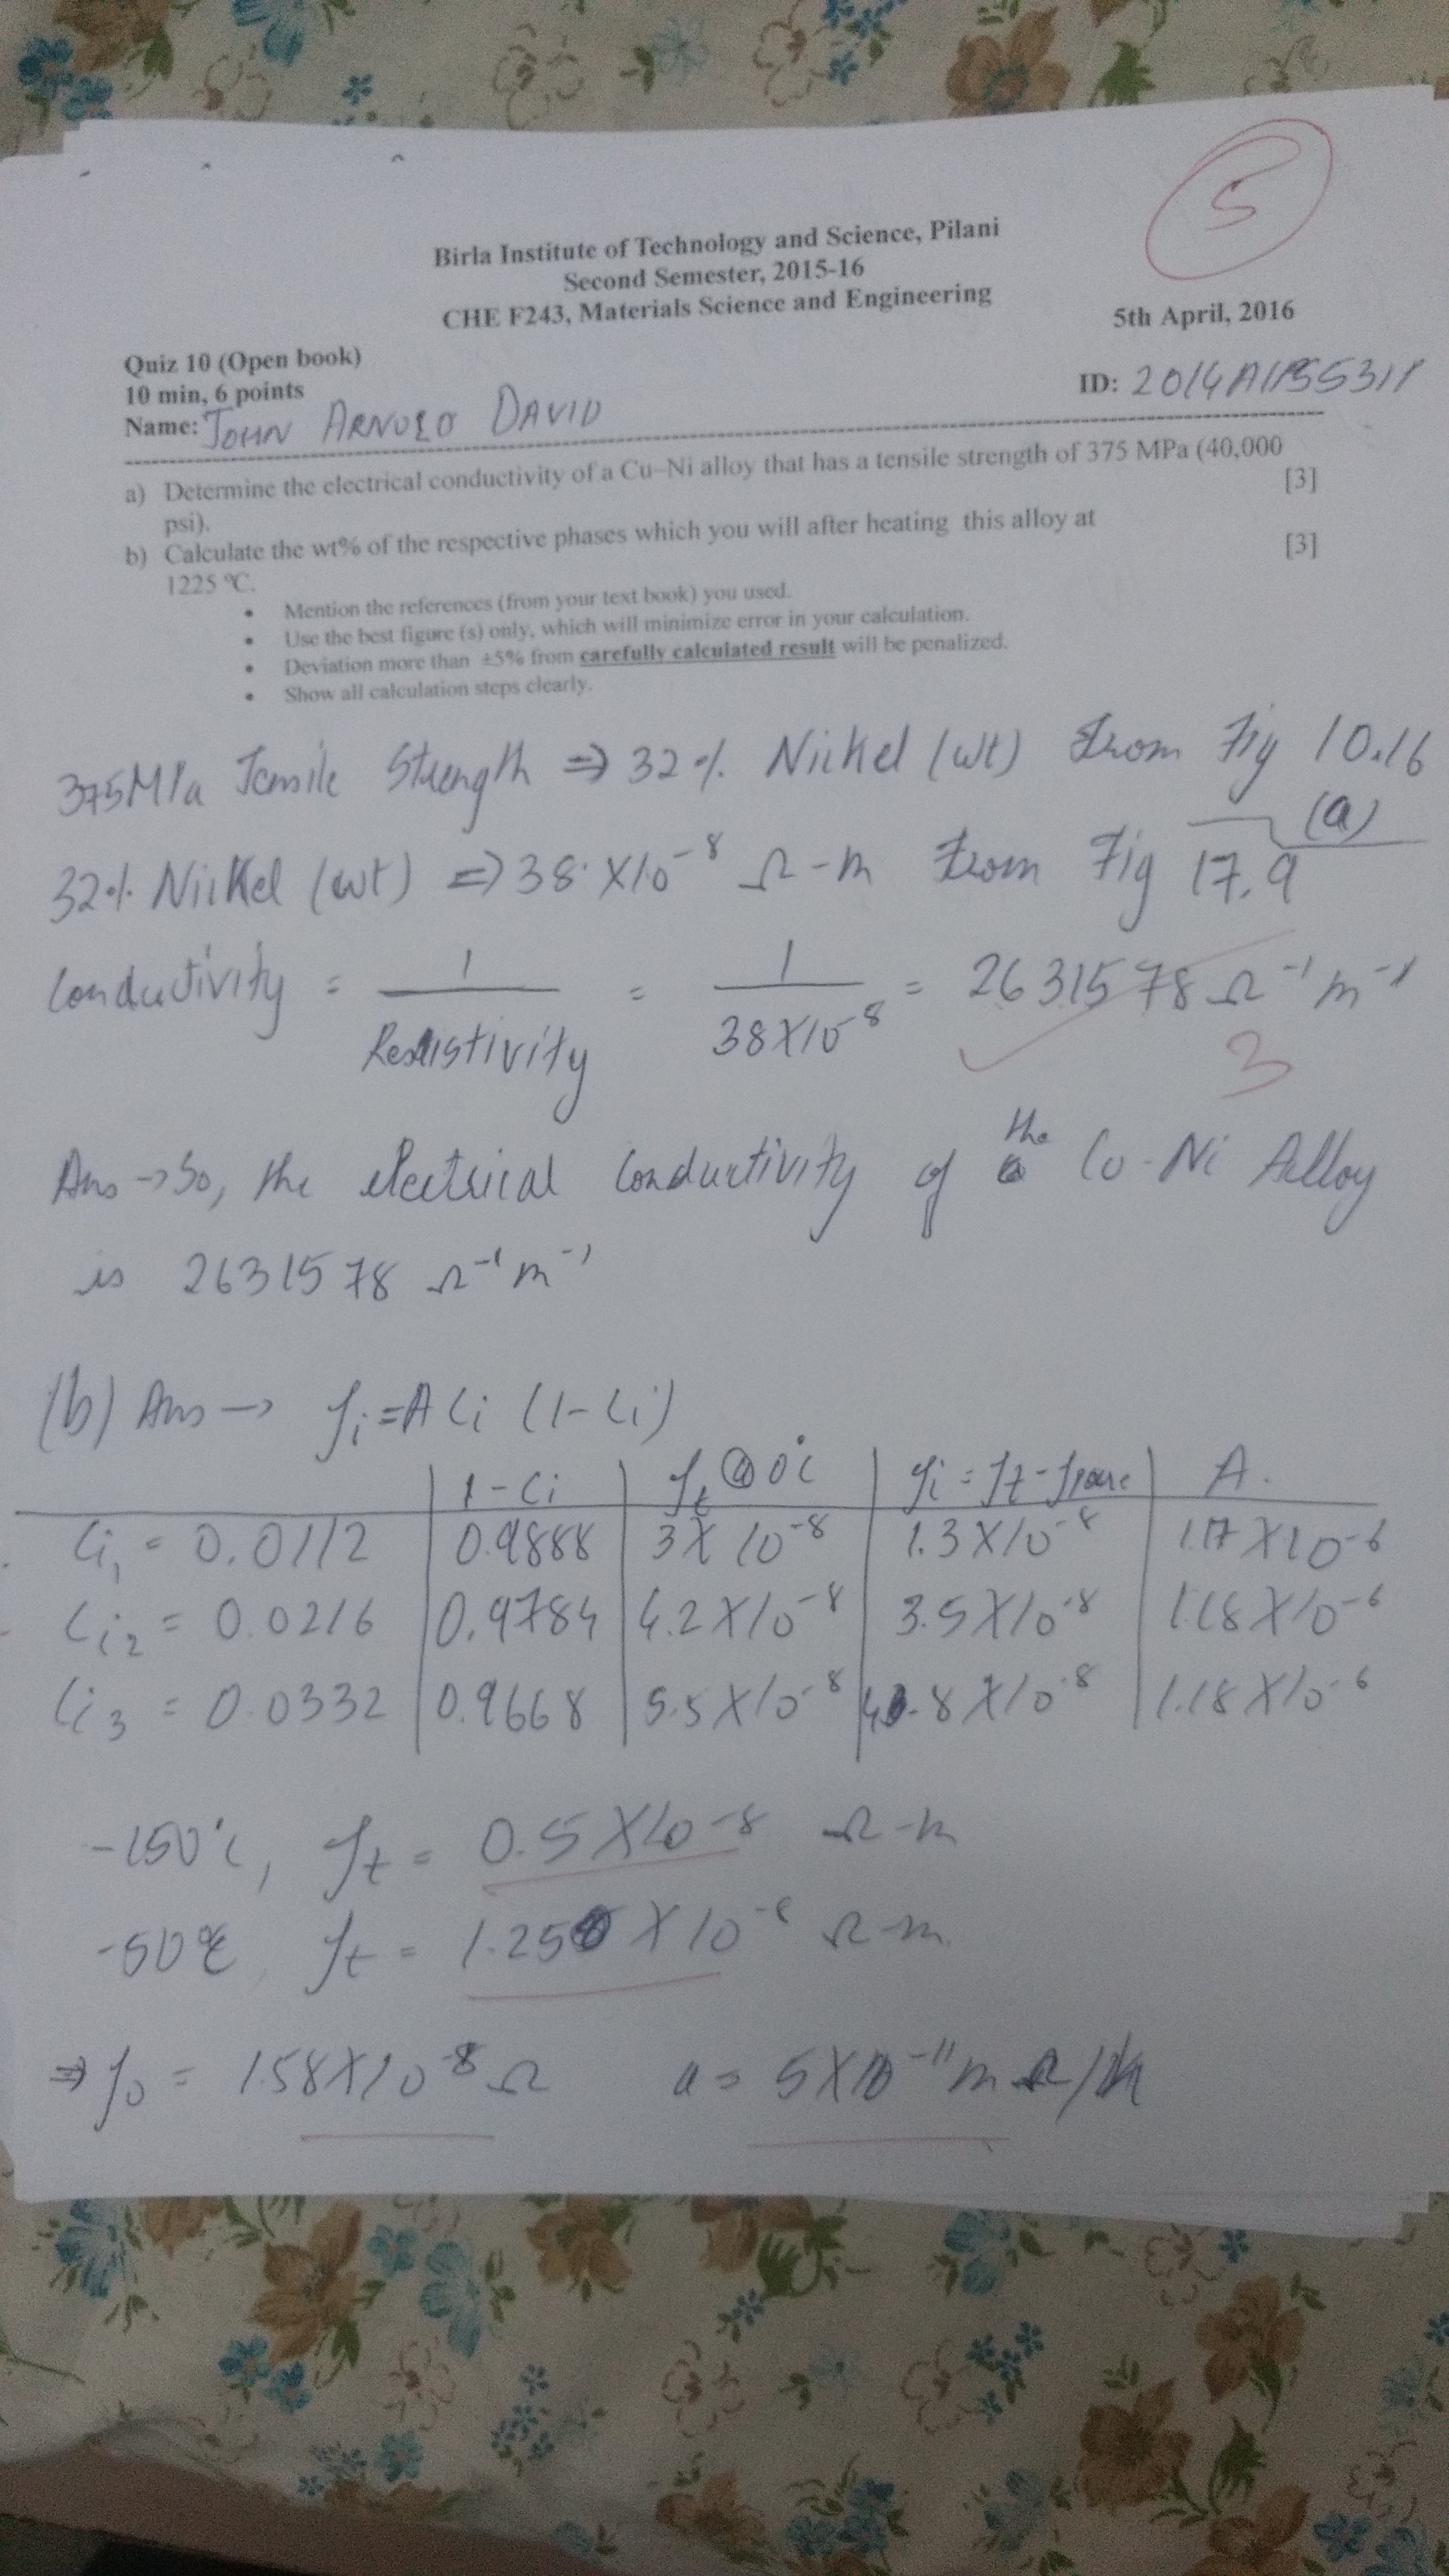 5
Birla Institute of Technology and Science, Pilani
Second Semester, 2015-16
CHE F243, Materials Science and Engineering
5th April, 2016
Quiz 10 (Open book)
10 min, 6 points
ID:
Name: JOHN ARNOLD DAVID
a) Determine the electrical conductivity of a Cu–Ni alloy that has a tensile strength of 375 MPa (40,000
psi). [3]
b) Calculate the wt% of the respective phases which you will after heating this alloy at
1225 ºC. [3]
• Mention the references (from your text book) you used.
• Use the best figure (s) only, which will minimize error in your calculation.
• Deviation more than ±5% from carefully calculated result will be penalized.
• Show all calculation steps clearly.
375MPa Tensile Strength ⇒ 32% Nickel (wt) from Fig 10.16
(a)
32% Nickel (wt) ⇒ 38 X10⁻⁸ Ω-m from Fig 17.9
Conductivity = 1 / Resistivity = 1 / 38X10⁻⁸ = 2631578 Ω⁻¹m⁻¹
3
Ans → So, the electrical conductivity of the Cu-Ni Alloy
is 2631578 Ω⁻¹m⁻¹
(b) Ans → ρi = A Ci (1-Ci)
1-Ci ρt @ 0°C ρi = ρt - ρpure A.
Ci₁ = 0.0112 0.9888 3X10⁻⁸ 1.3X10⁻⁸ 1.17X10⁻⁶
Ci₂ = 0.0216 0.9784 4.2X10⁻⁸ 3.5X10⁻⁸ 1.18X10⁻⁶
Ci₃ = 0.0332 0.9668 5.5X10⁻⁸ .8X10⁻⁸ 1.18X10⁻⁶
-150°C, ρt = 0.5X10⁻⁸ Ω-m
-50°C, ρt = 1.25 X10⁻⁸ Ω-m
⇒ ρ₀ = 1.58X10⁻⁸ Ω a = 5X10⁻¹¹